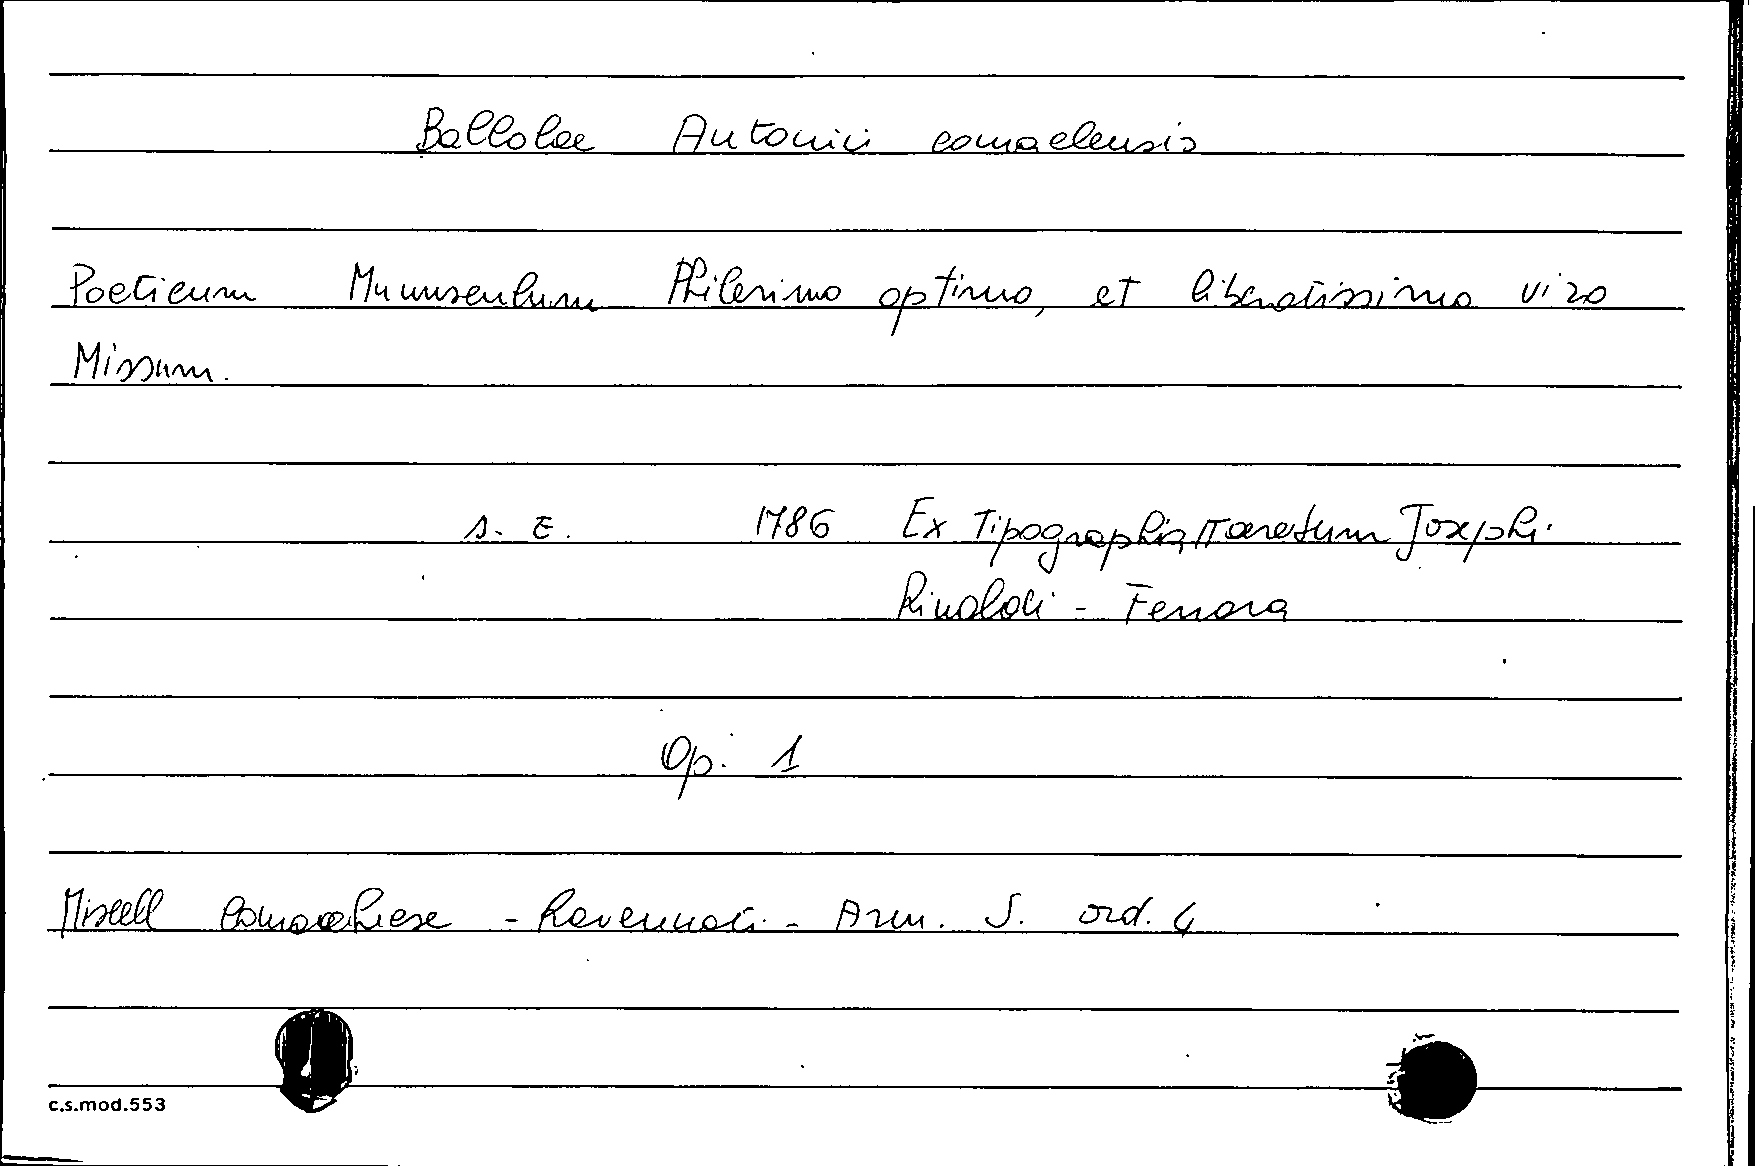 Ballolae Antonii comaclensis
Poeticum Munusculum Philerimo optimo, et liberatissimo viro
Missum.
s. E. 1786 Ex Tipographia Haeredum Josephi
Rinaldi - Ferrara
Op. 1
Miscell Comacchiese - Ravennati - Arm. S. ord. 4
c.s.mod.553